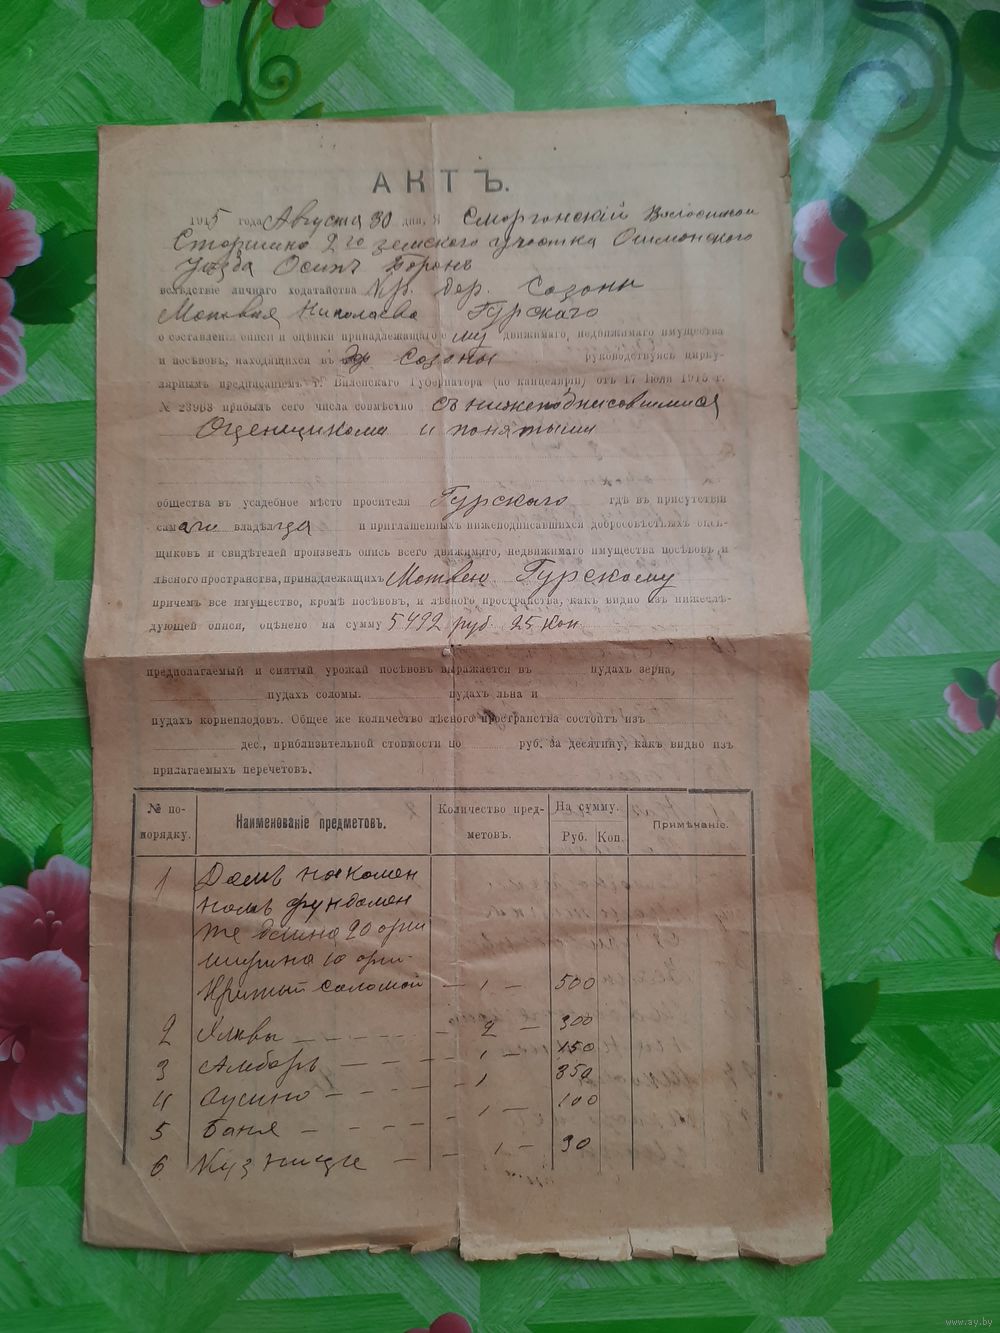 АКТЪ.
1915 года Августа 30 дня, я Сморгонскій Волостной
Старшина 2го земского участка Ошмянского
Уѣзда Осипъ
вслѣдствіе личнаго ходатайства Кр. дер. Сазоны
Матвѣя Николаева Гурскаго
о составленіи описи и оцѣнки принадлежащаго ему движимаго, недвижимаго имущества
и посѣвовъ, находящихся въ др Сазоны руководствуясь цирку-
лярнымъ предписаніемъ г. Виленскаго Губернатора (по канцеляріи) отъ 17 Іюля 1915 г.
№ 23963 прибылъ сего числа совмѣстно съ нижеподписовшимися
Оценщиками и понятыми
общества въ усадебное мѣсто просителя Гурскаго гдѣ въ присутствіи
самаго владѣлца и приглашенныхъ нижеподписавшихся добросовѣстныхъ оцѣн-
щиковъ и свидѣтелей произвелъ опись всего движимаго, недвижимаго имущества посѣвовъ и
лѣсного пространства, принадлежащихъ Матвею Гурскому
причемъ все имущество, кромѣ посѣвовъ, и лѣсного пространства, какъ видно изъ нижеслѣ-
дующей описи, оцѣнено на сумму 5492 руб. 25 коп
предполагаемый и снятый урожай посѣвовъ выражается въ пудахъ зерна,
пудахъ соломы. пудахъ льна и
пудахъ корнеплодовъ. Общее же количество лѣсного пространства состоитъ изъ
дес., приблизительной стоимости по руб. за десятину, какъ видно изъ
прилагаемыхъ перечетовъ.
№ по-порядку. Наименованіе предметовъ. Количество пред-метовъ. На сумму. Руб. Коп. Примѣчаніе.
1 Домъ на камен
номъ фундамен
те длина 20 арш
ширина 10 арш.
Крытый саломой — 1 — 500
2 Хлявы — 2 — 300
3 Амборъ — 1 — 150
4 Осино — 1 350
5 Баня — 1 — 100
6 Кузница — 1 — 90
www.ay.by